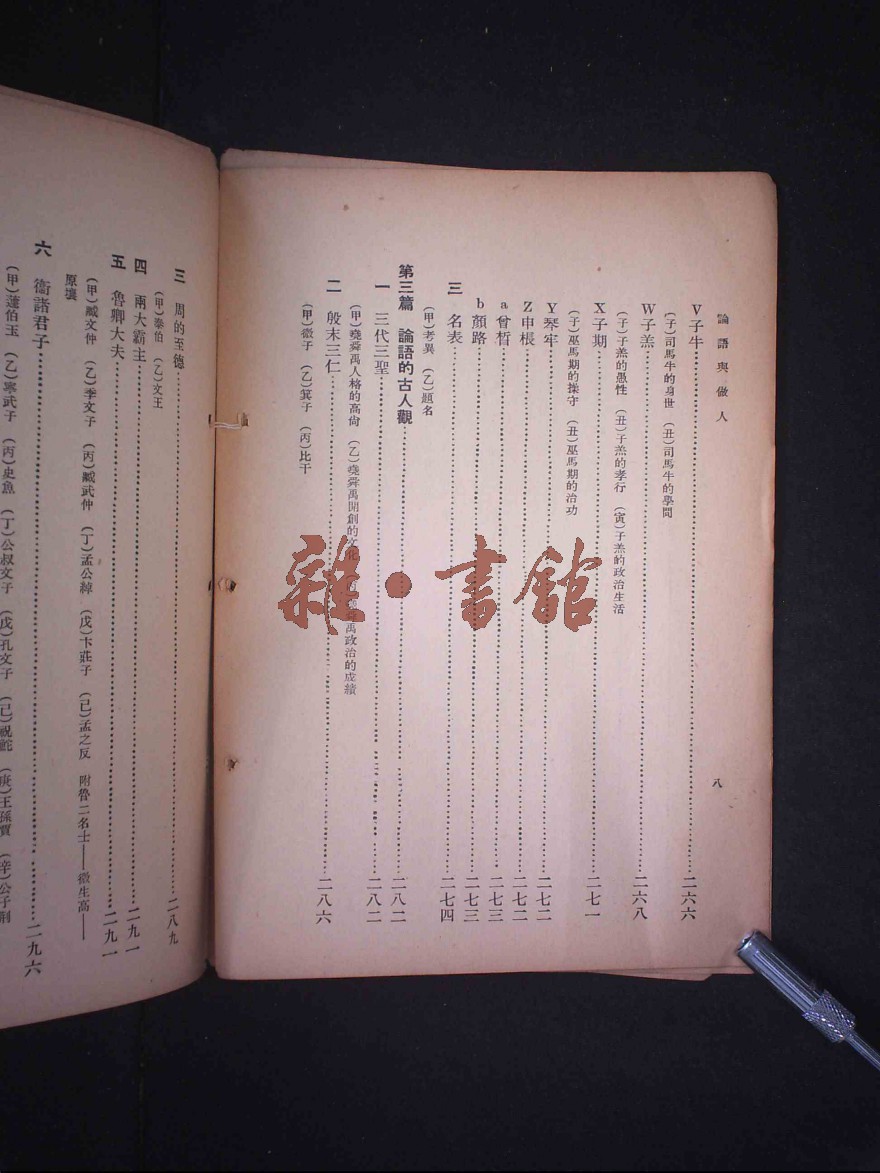 論語與做人
V子牛……二六六
（子）司馬牛的身世　（丑）司馬牛的學問
W子羔……二六八
（子）子羔的愚性　（丑）子羔的孝行　（寅）子羔的政治生活
X子期……二七一
（子）巫馬期的操守　（丑）巫馬期的治功
Y琴牢……二七二
Z申棖……二七二
a曾皙……二七三
b顏路……二七三
三　名表……二七四
（甲）考異　（乙）題名
第三篇　論語的古人觀……二八二
一　三代三聖……二八二
（甲）堯舜禹人格的高尚　（乙）堯舜禹開創的文化　禹政治的成績
二　殷末三仁……二八六
（甲）微子　（乙）箕子　（丙）比干
八
三　周的至德……二八九
（甲）泰伯　（乙）文王
四　兩大霸主……二九一
五　魯卿大夫……二九一
（甲）臧文仲　（乙）季文子　（丙）臧武仲　（丁）孟公綽　（戊）卞莊子　（己）孟之反　附魯二名士——微生高——
原壤
六　衞諸君子……二九六
（甲）蘧伯玉　（乙）寗武子　（丙）史魚　（丁）公叔文子　（戊）孔文子　（己）祝鮀　（庚）王孫賈　（辛）公子荆
雜·書館